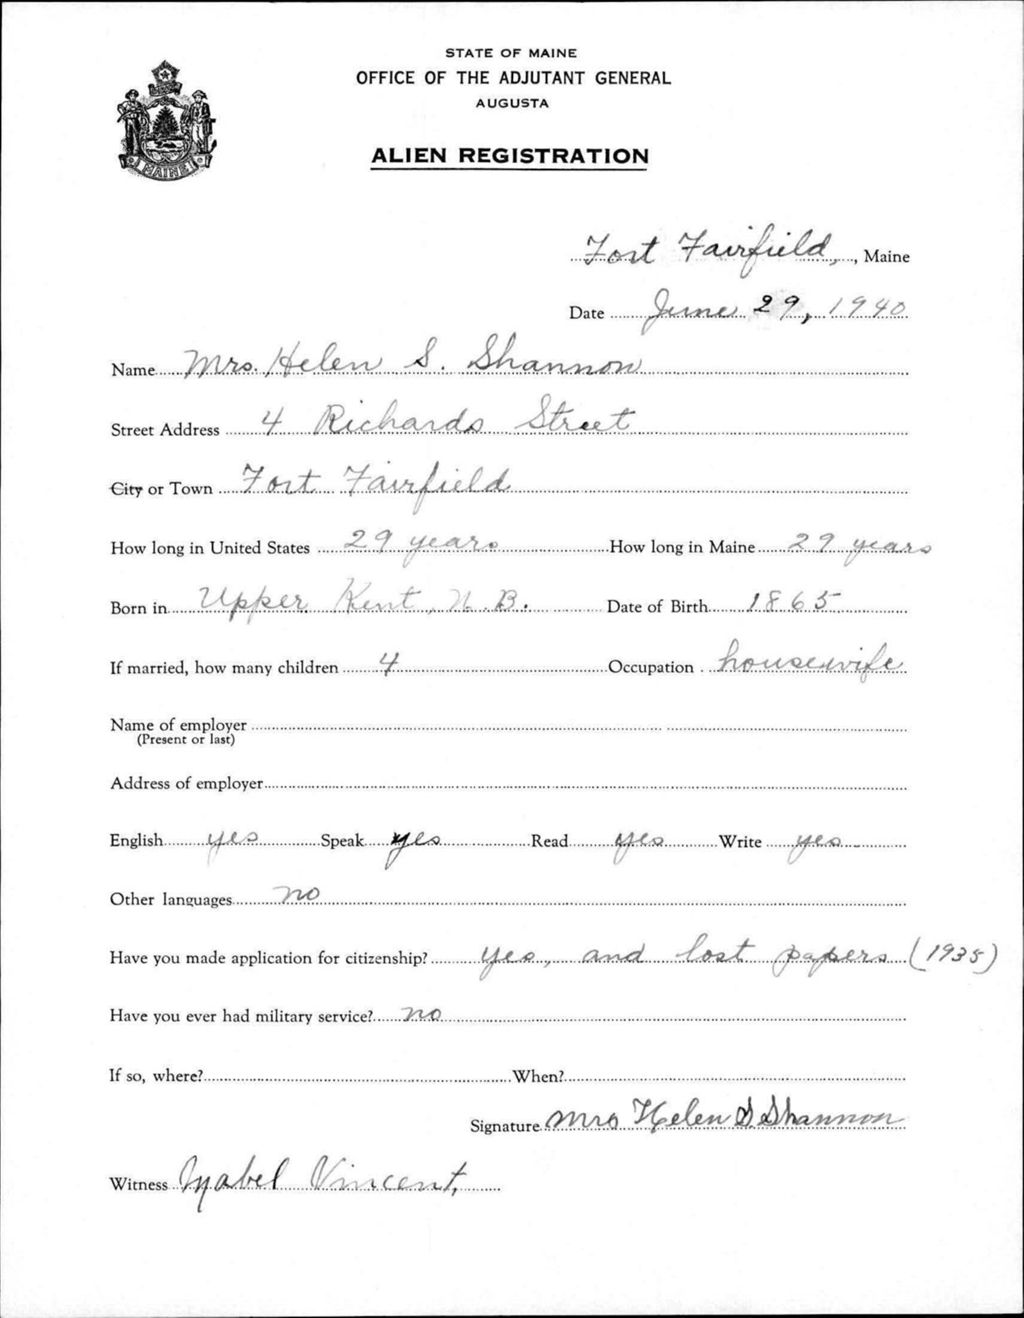 STATE OF MAINE
OFFICE OF THE ADJUTANT GENERAL
AUGUSTA
ALIEN REGISTRATION
MAINE
Fort Fairfield, , Maine
Date June 29, 1940
Name Mrs. Helen S. Shannon
Street Address 4 Richards Street
City or Town Fort Fairfield
How long in United States 29 years How long in Maine 29 years
Born in Upper Kent, N.B. Date of Birth 1865
If married, how many children 4 Occupation housewife
Name of employer
(Present or last)
Address of employer
English yes Speak yes Read yes Write yes
Other languages no
Have you made application for citizenship? yes, and lost papers (1935)
Have you ever had military service? no
If so, where? When?
Signature Mrs Helen S Shannon
Witness Mabel Vincent.